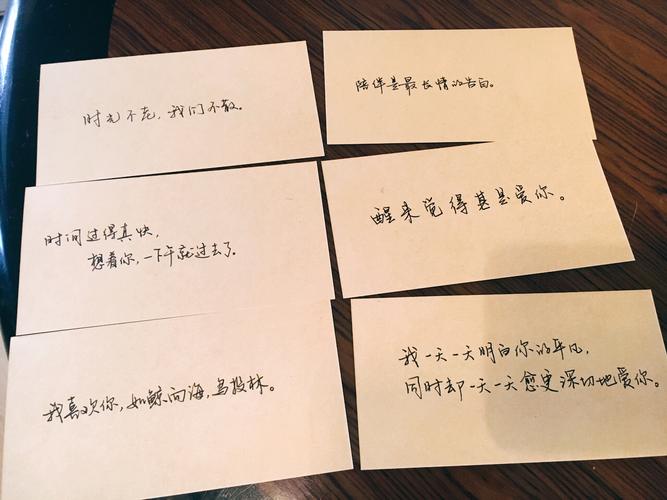 时光不老，我们不散。
陪伴是最长情的告白。
时间过得真快，
想着你，一下午就过去了。
醒来觉得甚是爱你。
我喜欢你，如鲸向海，鸟投林。
我一天一天明白你的平凡，
同时却一天一天愈更深切地爱你。